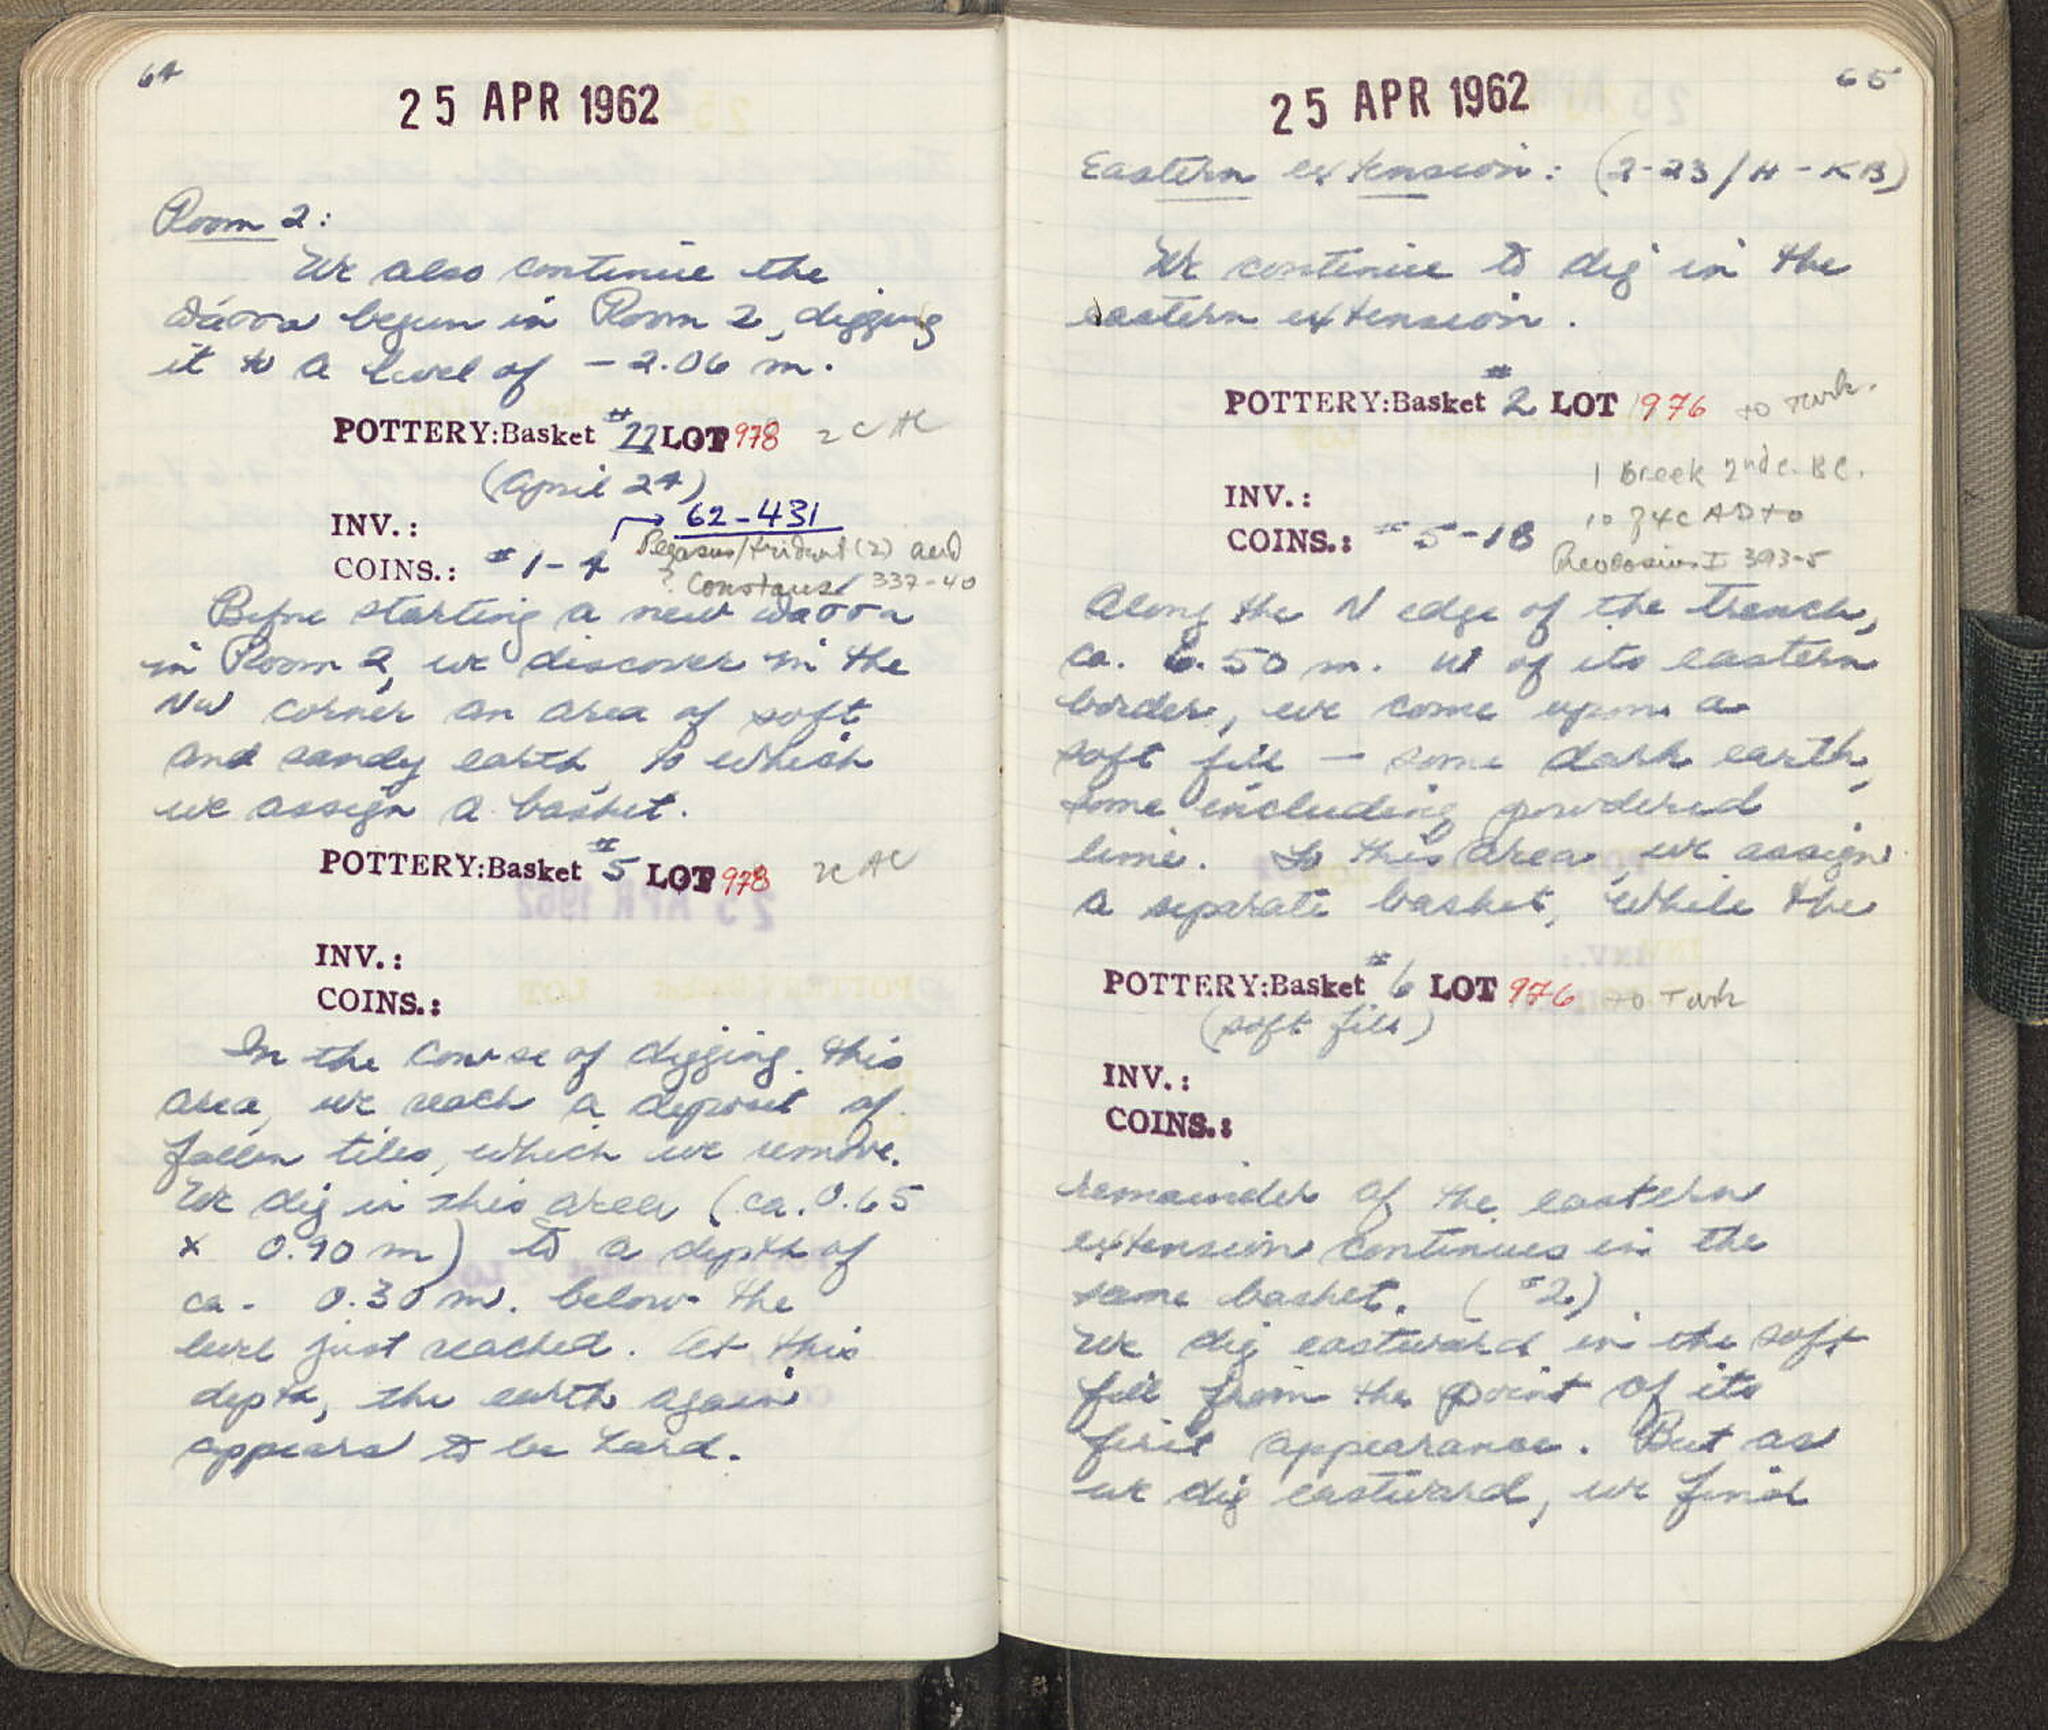 64
25 APR 1962
Room 2:
We also continue the
πάσσα begun in Room 2, digging
it to a level of - 2.06 m.
POTTERY:Basket #22 LOT 978 2C AC
(April 24)
INV.: → 62-431
COINS.: #1-4 Pegasus/trident (2) and
? Constans 337-40
Before starting a new πάσσα
in Room 2, we discover in the
NW corner an area of soft
and sandy earth, to which
we assign a basket.
POTTERY:Basket #5 LOT 978 2C AC
INV.:
COINS.:
In the course of digging this
area, we reach a deposit of
fallen tiles, which we remove.
We dig in this area (ca. 0.65
x 0.90 m) to a depth of
ca. 0.30 m. below the
level just reached. At this
depth, the earth again
appears to be hard.
65
25 APR 1962
Eastern extension: (2-23/H-KB)
We continue to dig in the
eastern extension.
POTTERY:Basket #2 LOT 976 to Turk.
1 Greek 2nd c. BC.
INV.:
10 of 4c AD to
COINS.: #5-18
Theodosius I 393-5
Along the N edge of the trench,
ca. 6.50 m. W of its eastern
border, we come upon a
soft fill - some dark earth,
some including powdered
lime. To this area, we assign
a separate basket, while the
POTTERY:Basket #6 LOT 976 to Turk
(soft fill)
INV.:
COINS.:
remainder of the eastern
extension continues in the
same basket. (#2)
We dig eastward in the soft
fill from the point of its
first appearance. But as
we dig eastward, we find